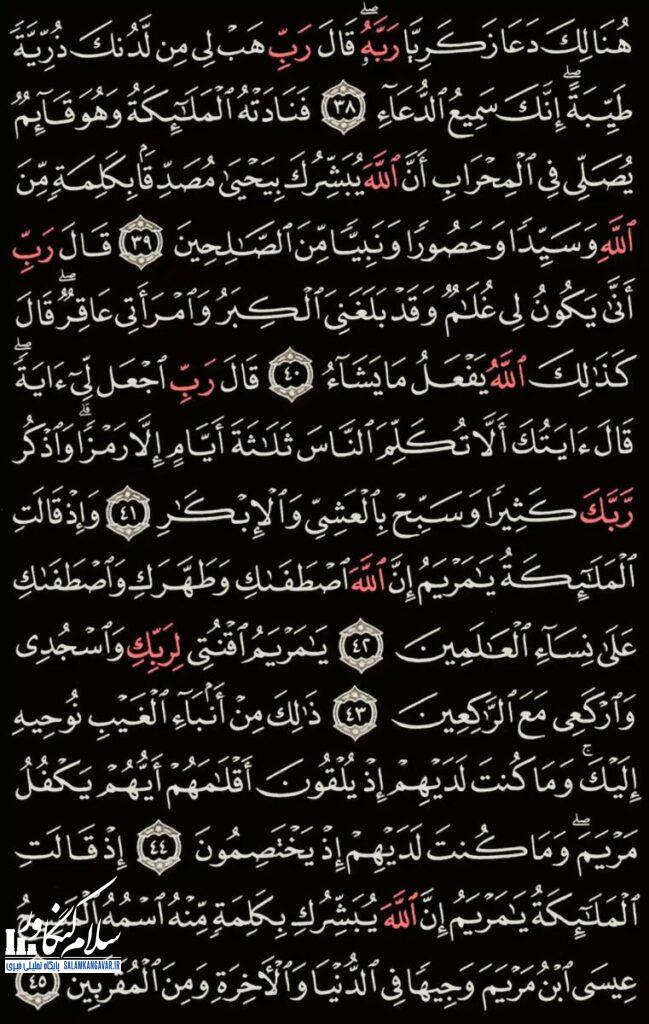 هُنَالِكَ دَعَا زَكَرِيَّا رَبَّهُۥۖ قَالَ رَبِّ هَبْ لِى مِن لَّدُنكَ ذُرِّيَّةً
طَيِّبَةًۖ إِنَّكَ سَمِيعُ ٱلدُّعَآءِ ۝٣٨ فَنَادَتْهُ ٱلْمَلَـٰٓئِكَةُ وَهُوَ قَآئِمٌ
يُصَلِّى فِى ٱلْمِحْرَابِ أَنَّ ٱللَّهَ يُبَشِّرُكَ بِيَحْيَىٰ مُصَدِّقًۢا بِكَلِمَةٍ مِّنَ
ٱللَّهِ وَسَيِّدًا وَحَصُورًا وَنَبِيًّا مِّنَ ٱلصَّـٰلِحِينَ ۝٣٩ قَالَ رَبِّ
أَنَّىٰ يَكُونُ لِى غُلَـٰمٌ وَقَدْ بَلَغَنِىَ ٱلْكِبَرُ وَٱمْرَأَتِى عَاقِرٌۖ قَالَ
كَذَٰلِكَ ٱللَّهُ يَفْعَلُ مَا يَشَآءُ ۝٤٠ قَالَ رَبِّ ٱجْعَل لِّىٓ ءَايَةًۖ
قَالَ ءَايَتُكَ أَلَّا تُكَلِّمَ ٱلنَّاسَ ثَلَـٰثَةَ أَيَّامٍ إِلَّا رَمْزًاۗ وَٱذْكُر
رَّبَّكَ كَثِيرًا وَسَبِّحْ بِٱلْعَشِىِّ وَٱلْإِبْكَـٰرِ ۝٤١ وَإِذْ قَالَتِ
ٱلْمَلَـٰٓئِكَةُ يَـٰمَرْيَمُ إِنَّ ٱللَّهَ ٱصْطَفَىٰكِ وَطَهَّرَكِ وَٱصْطَفَىٰكِ
عَلَىٰ نِسَآءِ ٱلْعَـٰلَمِينَ ۝٤٢ يَـٰمَرْيَمُ ٱقْنُتِى لِرَبِّكِ وَٱسْجُدِى
وَٱرْكَعِى مَعَ ٱلرَّٰكِعِينَ ۝٤٣ ذَٰلِكَ مِنْ أَنۢبَآءِ ٱلْغَيْبِ نُوحِيهِ
إِلَيْكَۚ وَمَا كُنتَ لَدَيْهِمْ إِذْ يُلْقُونَ أَقْلَـٰمَهُمْ أَيُّهُمْ يَكْفُلُ
مَرْيَمَۖ وَمَا كُنتَ لَدَيْهِمْ إِذْ يَخْتَصِمُونَ ۝٤٤ إِذْ قَالَتِ
ٱلْمَلَـٰٓئِكَةُ يَـٰمَرْيَمُ إِنَّ ٱللَّهَ يُبَشِّرُكِ بِكَلِمَةٍ مِّنْهُ ٱسْمُهُ ٱلْمَسِيحُ
عِيسَى ٱبْنُ مَرْيَمَ وَجِيهًا فِى ٱلدُّنْيَا وَٱلْـَٔاخِرَةِ وَمِنَ ٱلْمُقَرَّبِينَ ۝٤٥
سلام کنگاور
پایگاه تحلیلی خبری SALAMKANGAVAR.IR